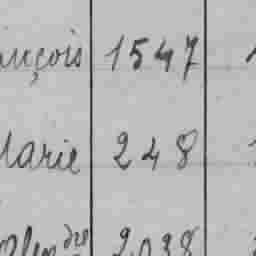 ançois 1547
Marie 248
dre 2038